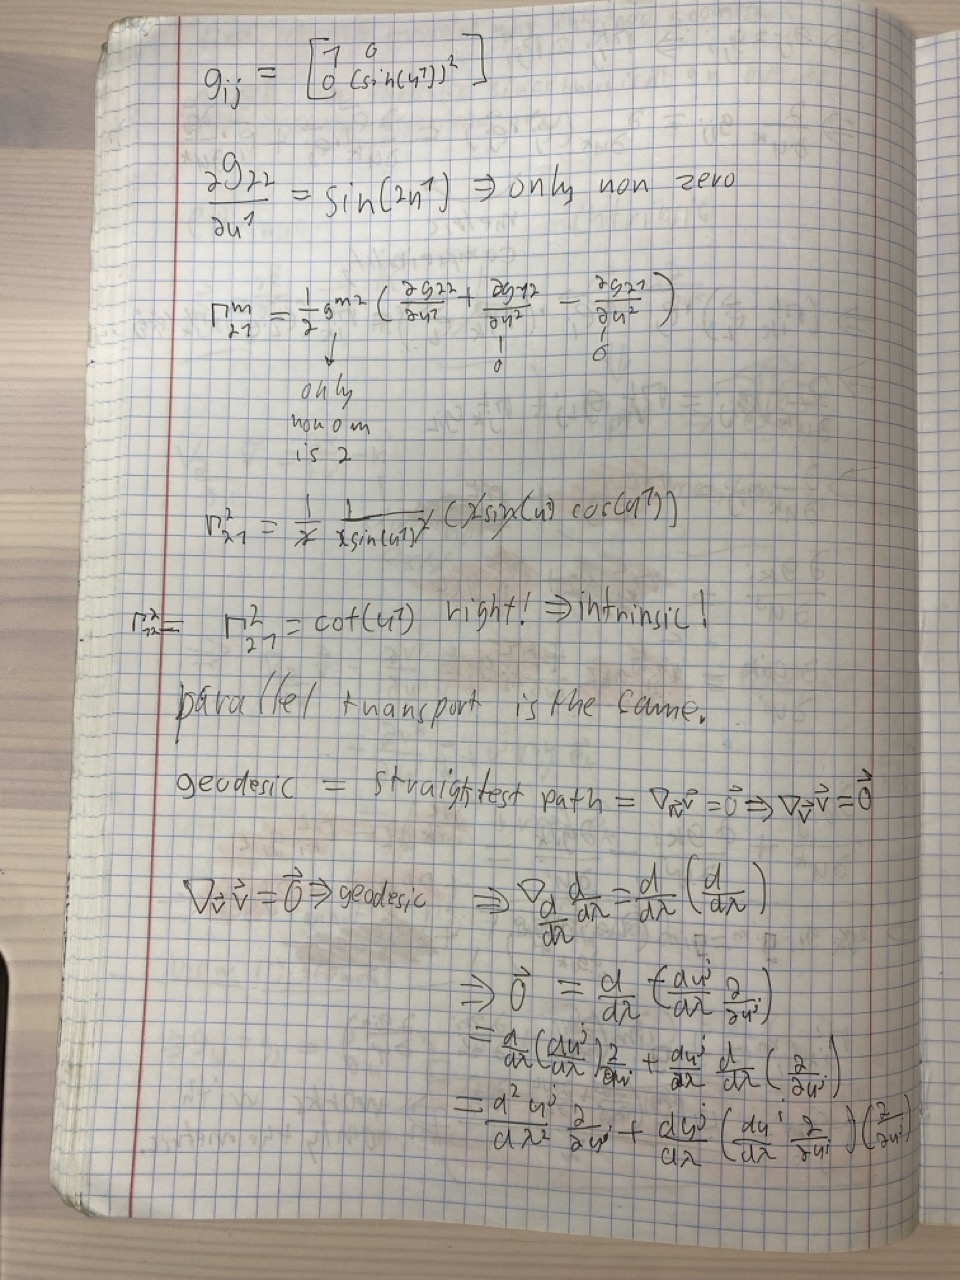 g_{ij} = [ 1 0
0 (sin(u¹))² ]
∂g₂₂/∂u¹ = sin(2u¹) ⇒ only non zero
Γ^m_{21} = 1/2 g^{m2} ( ∂g₂₂/∂u¹ + ∂g₁₂/∂u² − ∂g₂₁/∂u² )
↓ 0 0
only
non 0 m
is 2
Γ²₂₁ = 1/2 1/(sin(u¹))² (2 sin(u¹) cos(u¹))
Γ²₁₂ = Γ²₂₁ = cot(u¹) right! ⇒ intrinsic!
parallel transport is the same.
geodesic = straightest path = ∇_w⃗ v⃗ = 0⃗ ⇒ ∇_v⃗ v⃗ = 0⃗
∇_v⃗ v⃗ = 0⃗ ⇒ geodesic ⇒ ∇_{d/dλ} d/dλ = d/dλ (d/dλ)
⇒ 0⃗ = d/dλ (du^j/dλ ∂/∂u^j)
= d/dλ (du^j/dλ) ∂/∂u^j + du^j/dλ d/dλ (∂/∂u^j)
= d²u^j/dλ² ∂/∂u^j + du^j/dλ (du^i/dλ ∂/∂u^i) (∂/∂u^j)